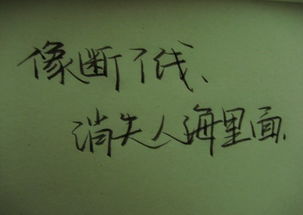 像断了线、
消失人海里面.